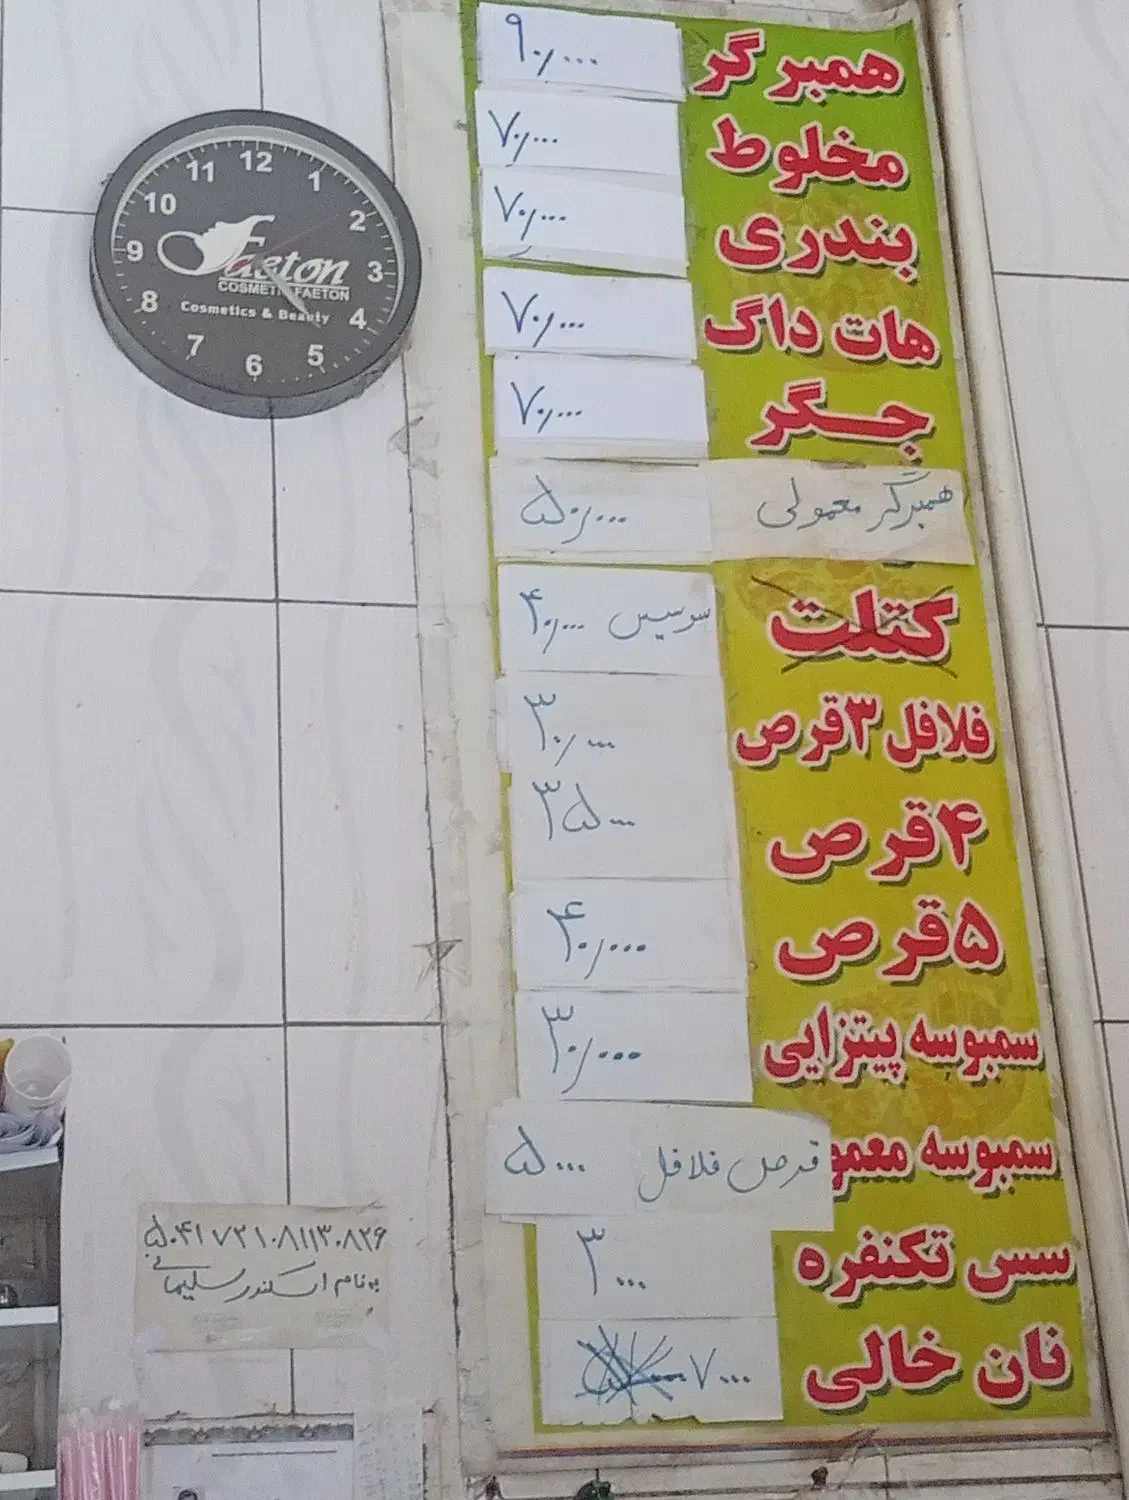 همبر گر ۹۰/۰۰۰
مخلوط ۷۰/۰۰۰
بندری ۷۰/۰۰۰
هات داگ ۷۰/۰۰۰
جگر ۷۰/۰۰۰
همبرگر معمولی ۵۰/۰۰۰
کتلت سوسیس ۴۰/۰۰۰
فلافل ۳ قرص ۳۰/۰۰۰
۴ قرص ۳۵۰۰۰
۵ قرص ۴۰/۰۰۰
سمبوسه پیتزایی ۳۰/۰۰۰
سمبوسه معمو قرص فلافل ۵۰۰۰
سس تکنفره ۳۰۰۰
نان خالی ۷۰۰۰
12
11
1
10
2
9
3
8
4
7
5
6
Faeton
COSMETIC FAETON
Cosmetics & Beauty
۵۰۴۱۷۲۱۰۸۱۱۳۰۸۲۶
به نام اسکندر سلیمانی